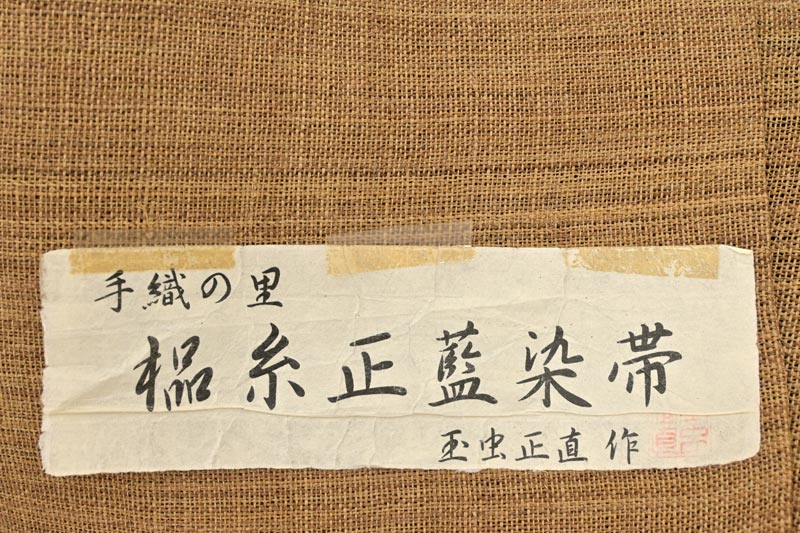 手織の里
榀糸正藍染帯
玉虫正直 作